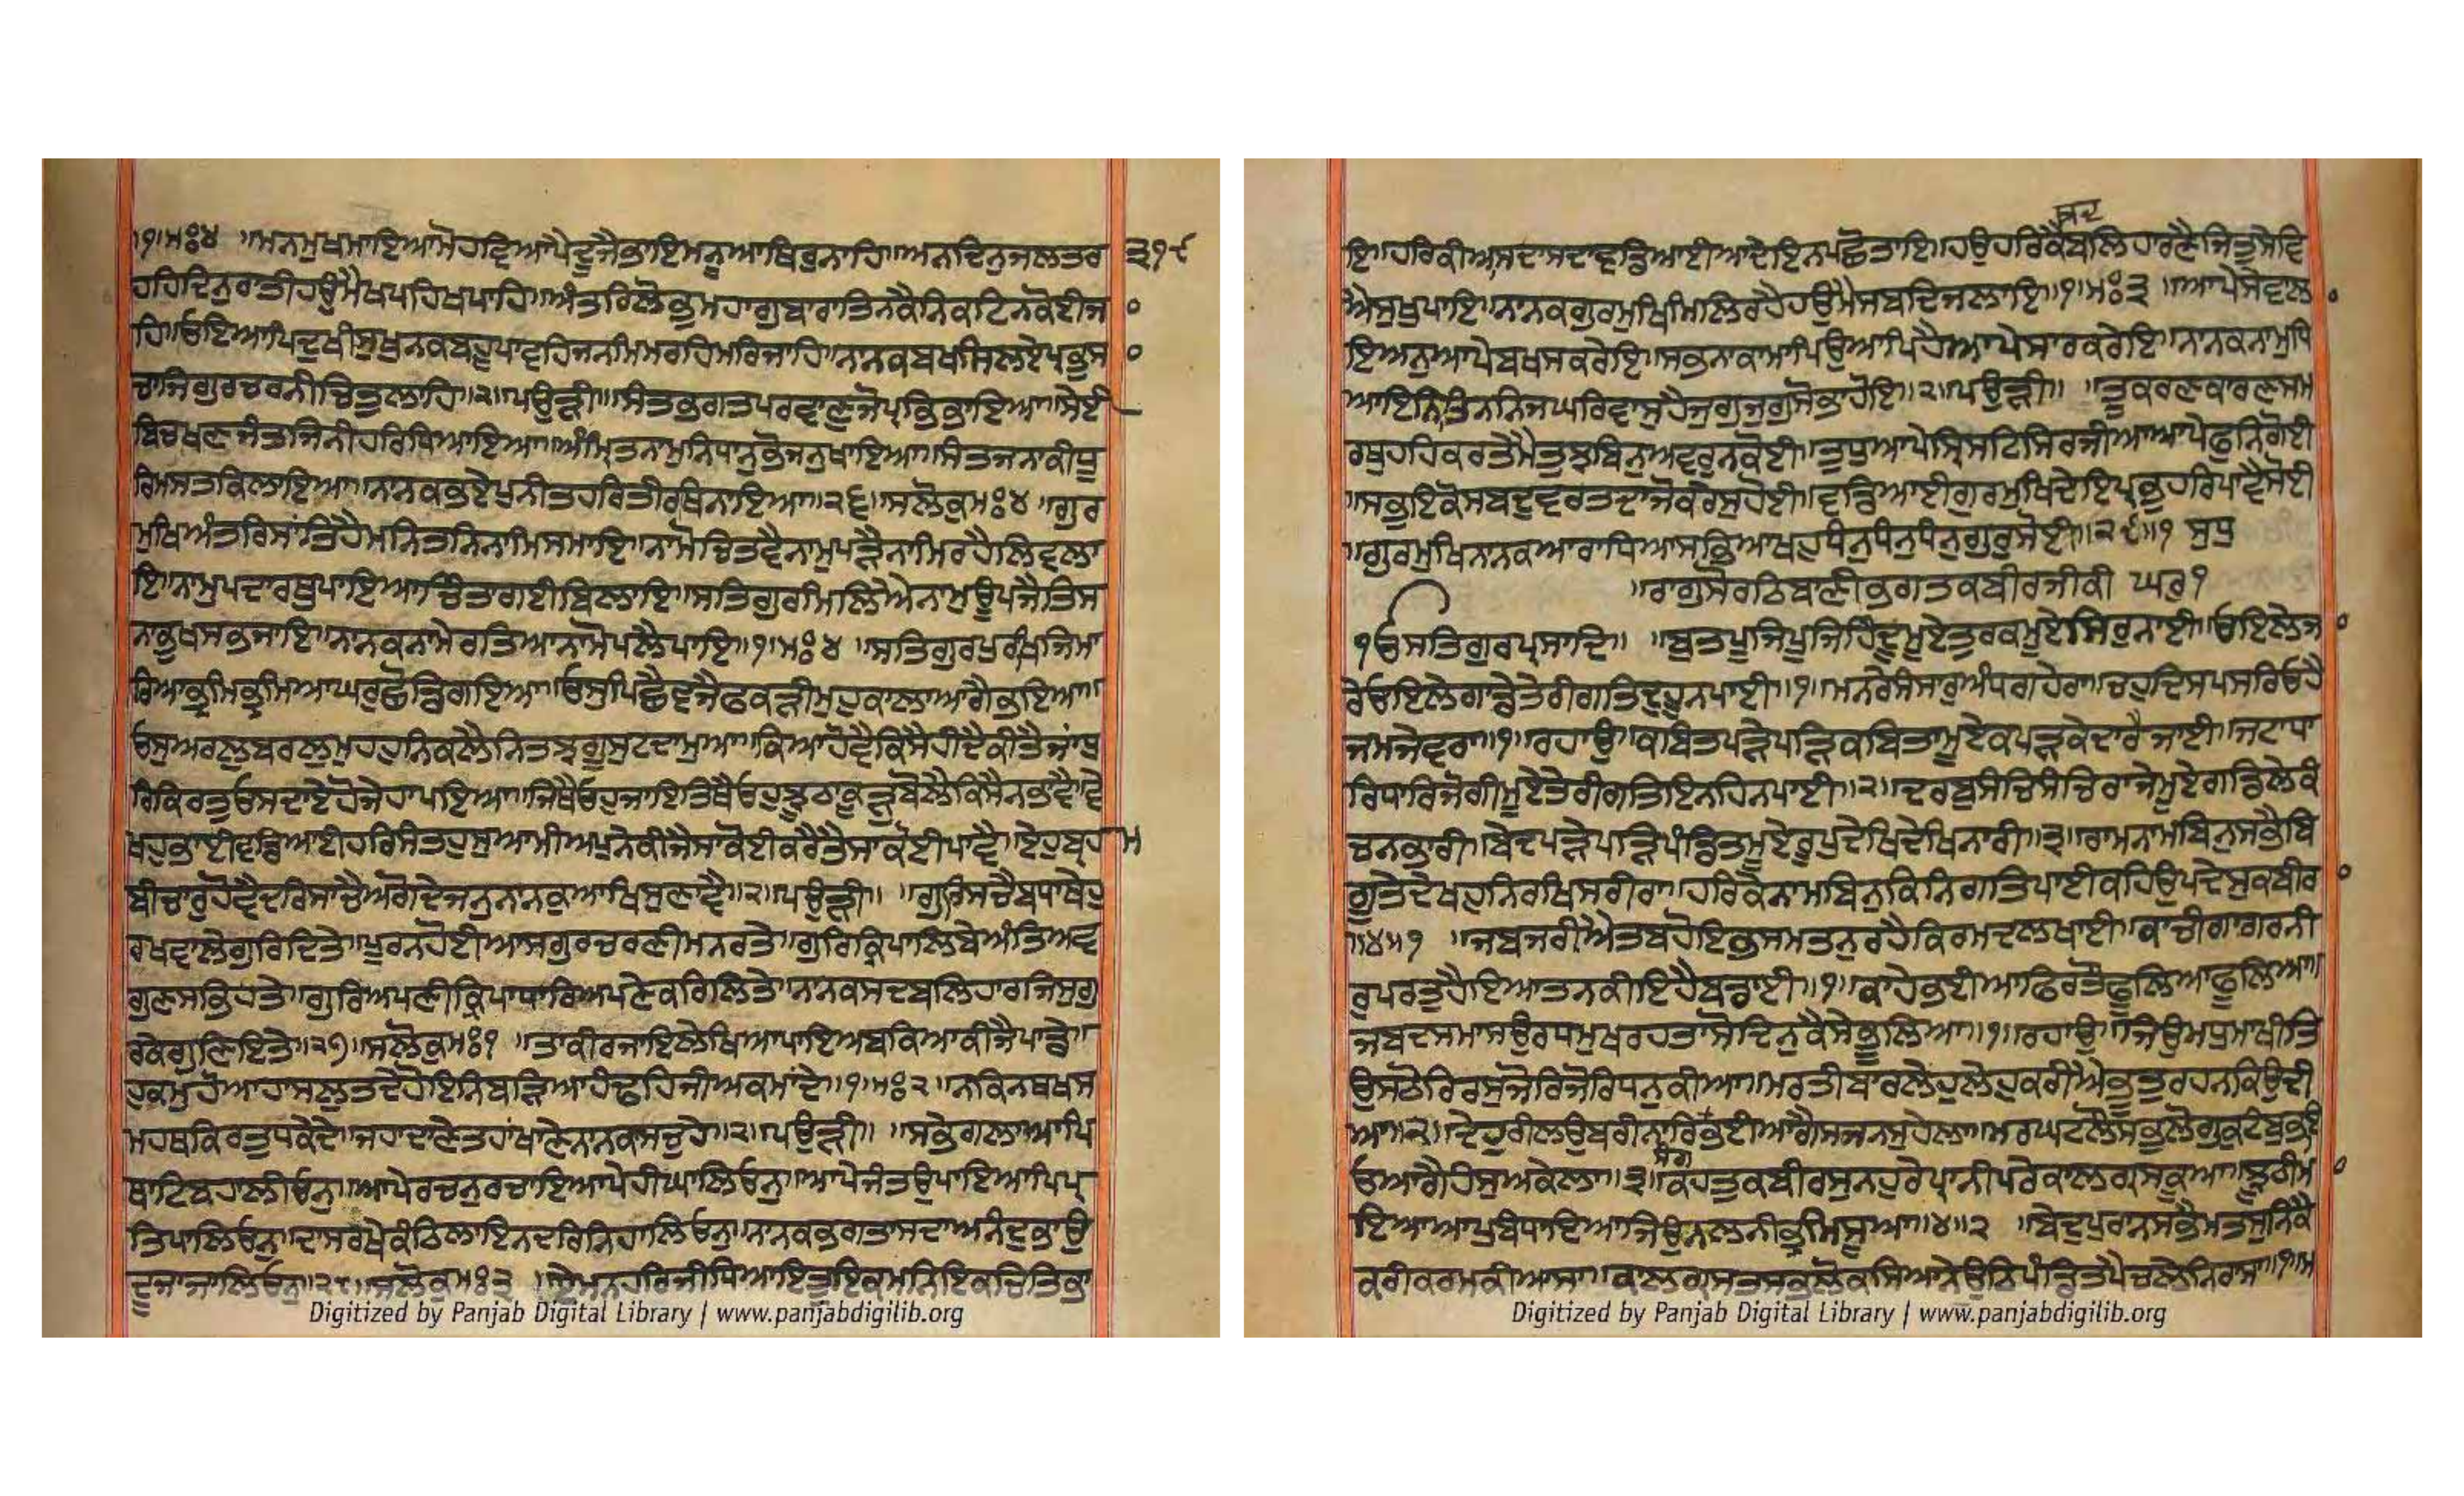 ।੧।ਮਃ੪ ॥ਮਨਮੁਖਮਾਇਆਮੋਹਵਿਆਪੇਦੂਜੈਭਾਇਮਨੂਆਥਿਰੁਨਾਹਿ॥ਅਨਦਿਨੁਜਲਤਰ ੩੧੯
ਹਹਿਦਿਨੁਰਾਤੀਹਉਮੈਖਪਹਿਖਪਾਹਿ॥ਅੰਤਰਿਲੋਭੁਮਹਾਗੁਬਾਰਾਤਿਨਕੈਨਿਕਟਿਨਕੋਈਜਾ
ਹਿ॥ਓਇਆਪਿਦੁਖੀਸੁਖੁਨਕਬਹੂਪਾਵਹਿਜਨਮਿਮਰਹਿਮਰਿਜਾਹਿ॥ਨਾਨਕਬਖਸਿਲਏਪ੍ਰਭੁਸਾ
ਚਾਜਿਗੁਰਚਰਨੀਚਿਤੁਲਾਹਿ॥੨॥ਪਉੜੀ॥ ਸੰਤਭਗਤਪਰਵਾਣੁਜੋਪ੍ਰਭਿਭਾਇਆ॥ਸੇਈ
ਬਿਚਖਣਜੰਤਜਿਨੀਹਰਿਧਿਆਇਆ॥ਅੰਮ੍ਰਿਤਨਾਮੁਨਿਧਾਨੁਭੋਜਨੁਖਾਇਆ॥ਸੰਤਜਨਾਕੀਧੂ
ਰਿਮਸਤਕਿਲਾਇਆ॥ਨਾਨਕਭਏਪੁਨੀਤਹਰਿਤੀਰਥਿਨਾਇਆ॥੨੬॥ਸਲੋਕੁਮਃ੪ ॥ਗੁਰ
ਮੁਖਿਅੰਤਰਿਸਾਂਤਿਹੈਮਨਿਤਨਿਨਾਮਿਸਮਾਇ॥ਨਾਮੋਚਿਤਵੈਨਾਮੁਪੜੈਨਾਮਿਰਹੈਲਿਵਲਾ
ਇ॥ਨਾਮੁਪਦਾਰਥੁਪਾਇਆਚਿੰਤਾਗਈਬਿਲਾਇ॥ਸਤਿਗੁਰਿਮਿਲਿਐਨਾਮੁਊਪਜੈਤਿਸ
ਨਾਭੁਖਸਭਜਾਇ॥ਨਾਨਕਨਾਮੇਰਤਿਆਨਾਮੋਪਲੈਪਾਇ॥੧॥ਮਃ੪ ॥ਸਤਿਗੁਰਪੁਰਖਿਜਿਮਾ
ਰਿਆਭ੍ਰਮਿਭ੍ਰਮਿਆਘਰੁਛੋਡਿਗਇਆ॥ਓਸੁਪਿਛੈਵਜੈਫਕੜੀਮੁਹੁਕਾਲਾਆਗੈਭਇਆ॥
ਓਸੁਅਰਲੁਬਰਲੁਮੁਹਹੁਨਿਕਲੈਨਿਤਝਗੂਸੁਟਦਾਮੁਆ॥ਕਿਆਹੋਵੈਕਿਸੈਹੀਦੈਕੀਤੈਜਾਂਧੁ
ਰਿਕਿਰਤੁਓਸਦਾਏਹੋਜੇਹਾਪਇਆ॥ਜਿਥੈਓਹੁਜਾਇਤਿਥੈਓਹੁਝੂਠਾਕੂੜੁਬੋਲੈਕਿਸੈਨਭਾਵੈ॥ਵੇ
ਖਹੁਭਾਈਵਡਿਆਈਹਰਿਸੰਤਹੁਸੁਆਮੀਅਪੁਨੇਕੀਜੈਸਾਕੋਈਕਰੈਤੈਸਾਕੋਈਪਾਵੈ॥ਏਹੁਬ੍ਰਹਮ
ਬੀਚਾਰੁਹੋਵੈਦਰਿਸਾਚੈਅਗੋਦੇਜਨੁਨਾਨਕੁਆਖਿਸੁਣਾਵੈ॥੨॥ਪਉੜੀ॥ ॥ਗੁਰਿਸਚੈਬਧਾਥੇਹੁ
ਰਖਵਾਲੇਗੁਰਿਦਿਤੇ॥ਪੂਰਨਹੋਈਆਸਗੁਰਚਰਣੀਮਨਰਤੇ॥ਗੁਰਿਕ੍ਰਿਪਾਲਿਬੇਅੰਤਿਅਵ
ਗੁਣਸਭਿਹਤੇ॥ਗੁਰਿਅਪਣੀਕਿਰਪਾਧਾਰਿਅਪਣੇਕਰਿਲਿਤੇ॥ਨਾਨਕਸਦਬਲਿਹਾਰਜਿਸੁਗੁ
ਰਕੇਗੁਣਇਤੇ॥੨੭॥ਸਲੋਕੁਮਃ੧ ॥ਤਾਕੀਰਜਾਇਲੇਖਿਆਪਾਇਅਬਕਿਆਕੀਜੈਪਾਂਡੇ॥
ਹੁਕਮੁਹੋਆਹਾਸਲੁਤਦੇਹੋਇਨਿਬੜਿਆਹੰਢਹਿਜੀਅਕਮਾਂਦੇ॥੧॥ਮਃ੨ ॥ਨਕਿਨਥਖਸ
ਮਹਥਕਿਰਤੁਧਕੇਦੇ॥ਜਹਾਦਾਣੇਤਹਾਂਖਾਣੇਨਾਨਕਸਚੁਹੇ॥੨॥ਪਉੜੀ॥ ॥ਸਭੇਗਲਾਆਪਿ
ਥਾਟਿਬਹਾਲੀਓਨੁ॥ਆਪੇਰਚਨੁਰਚਾਇਆਪੇਹੀਘਾਲਿਓਨੁ॥ਆਪੇਜੰਤਉਪਾਇਆਪਿਪ੍ਰ
ਤਿਪਾਲਿਓਨੁ॥ਦਾਸਰਖੇਕੰਠਿਲਾਇਨਦਰਿਨਿਹਾਲਿਓਨੁ॥ਨਾਨਕਭਗਤਾਸਦਾਅਨੰਦੁਭਾਉ
ਦੂਜਾਜਾਲਿਓਨੁ॥੨੮॥ਸਲੋਕੁਮਃ੩ ॥ਏਮਨਹਰਿਜੀਧਿਆਇਤੂਇਕਮਨਿਇਕਚਿਤਿਭਾ
ਇ॥ਹਰਿਕੀਆਸਦਾਸਦਾਵਡਿਆਈਆਦੇਇਨਪਛੋਤਾਇ॥ਹਉਹਰਿਕੈਬਲਿਹਾਰਣੈਜਿਤੁਸੇਵਿ
ਐਸੁਖੁਪਾਇ॥ਨਾਨਕਗੁਰਮੁਖਿਮਿਲਿਰਹੈਹਉਮੈਸਬਦਿਜਲਾਇ॥੧॥ਮਃ੩ ॥ਆਪੇਸੇਵਾਲਾ
ਇਅਨੁਆਪੇਬਖਸਕਰੇਇ॥ਸਭਨਾਕਾਮਾਪਿਉਆਪਿਹੈਆਪੇਸਾਰਕਰੇਇ॥ਨਾਨਕਨਾਮੁਧਿ
ਆਇਨਿਤਿਨਨਿਜਘਰਿਵਾਸੁਹੈਜੁਗੁਜੁਗੁਸੋਭਾਹੋਇ॥੨॥ਪਉੜੀ॥ ॥ਤੂਕਰਣਕਾਰਣਸਮ
ਰਥੁਹਹਿਕਰਤੇਮੈਤੁਝਬਿਨੁਅਵਰੁਨਕੋਈ॥ਤੁਧੁਆਪੇਸ੍ਰਿਸਟਿਸਿਰਜੀਆਆਪੇਫੁਨਿਗੋਈ
॥ਸਭੁਇਕੋਸਬਦੁਵਰਤਦਾਜੋਕਰੇਸੁਹੋਈ॥ਵਡਿਆਈਗੁਰਮੁਖਿਦੇਇਪ੍ਰਭੁਹਰਿਪਾਵੈਸੋਈ
॥ਗੁਰਮੁਖਿਨਾਨਕਆਰਾਧਿਆਸਭਿਆਖਹੁਧੰਨੁਧੰਨੁਧੰਨੁਗੁਰੁਸੋਈ॥੨੯॥੧ ਸੁਧੁ
॥ਰਾਗੁਸੋਰਠਿਬਾਣੀਭਗਤਕਬੀਰਜੀਕੀ ਘਰੁ੧
੧ਓਸਤਿਗੁਰਪ੍ਰਸਾਦਿ॥ ॥ਬੁਤਪੂਜਿਪੂਜਿਹਿੰਦੂਮੂਏਤੁਰਕਮੂਏਸਿਰੁਨਾਈ॥ਓਇਲੇਜਾ
ਰੇਓਇਲੇਗਾਡੇਤੇਰੀਗਤਿਦੁਹੂਨਪਾਈ॥੧॥ਮਨਰੇਸੰਸਾਰੁਅੰਧਗਹੇਰਾ॥ਚਹੁਦਿਸਪਸਰਿਓਹੈ
ਜਮਜੇਵਰਾ॥੧॥ਰਹਾਉ॥ਕਬਿਤਪੜੇਪੜਿਕਬਿਤਾਮੂਏਕਪੜਕੇਦਾਰੈਜਾਈ॥ਜਟਾਧਾ
ਰਿਧਾਰਿਜੋਗੀਮੂਏਤੇਰੀਗਤਿਇਨਹਿਨਪਾਈ॥੨॥ਦਰਬੁਸੰਚਿਸੰਚਿਰਾਜੇਮੂਏਗਡਿਲੇਕੰ
ਚਨਭਾਰੀ॥ਬੇਦਪੜੇਪੜਿਪੰਡਿਤਮੂਏਰੂਪੁਦੇਖਿਦੇਖਿਨਾਰੀ॥੩॥ਰਾਮਨਾਮਬਿਨੁਸਭੈਬਿ
ਗੂਤੇਦੇਖਹੁਨਿਰਖਿਸਰੀਰਾ॥ਹਰਿਕੇਨਾਮਬਿਨੁਕਿਨਿਗਤਿਪਾਈਕਹਿਉਪਦੇਸੁਕਬੀਰਾ
॥੪॥੧ ॥ਜਬਜਰੀਐਤਬਹੋਇਭਸਮਤਨੁਰਹੈਕਿਰਮਦਲਖਾਈ॥ਕਾਚੀਗਾਗਰਨੀ
ਰੁਪਰਤੁਹੈਇਆਤਨਕੀਇਹੈਬਡਾਈ॥੧॥ਕਾਹੇਭਈਆਫਿਰਤੌਫੂਲਿਆਫੂਲਿਆ॥
ਜਬਦਸਮਾਸਉਰਧਮੁਖਰਹਤਾਸੋਦਿਨੁਕੈਸੇਭੂਲਿਆ॥੧॥ਰਹਾਉ॥ਜਿਉਮਧੁਮਾਖੀਤਿ
ਉਸਠੋਰਿਰਸੁਜੋਰਿਜੋਰਿਧਨੁਕੀਆ॥ਮਰਤੀਬਾਰਲੇਹੁਲੇਹੁਕਰੀਐਭੂਤੁਰਹਨਕਿਉਦੀ
ਆ॥੨॥ਦੇਹੁਰੀਲਉਬਰੀਨਾਰਿਸੰਗਭਈਆਗੈਸਜਨਸੁਹੇਲਾ॥ਮਰਘਟਲੌਸਭੁਲੋਗੁਕੁਟੰਬੁਭ
ਓਆਗੈਹੰਸੁਅਕੇਲਾ॥੩॥ਕਹਤੁਕਬੀਰਸੁਨਹੁਰੇਪ੍ਰਾਨੀਪਰੇਕਾਲਗ੍ਰਸਕੂਆ॥ਝੂਠੀਮਾ
ਇਆਆਪੁਬੰਧਾਇਆਜਿਉਨਲਨੀਭ੍ਰਮਿਸੂਆ॥੪॥੨ ॥ਬੇਦਪੁਰਾਨਸਭੈਮਤਸੁਨਿਕੈ
ਕਰੀਕਰਮਕੀਆਸਾ॥ਕਾਲਗ੍ਰਸਤਸਭਲੋਕਸਿਆਨੇਉਠਿਪੰਡਿਤਪੈਚਲੇਨਿਰਾਸਾ॥੧॥ਮ
Digitized by Panjab Digital Library | www.panjabdigilib.org
Digitized by Panjab Digital Library | www.panjabdigilib.org